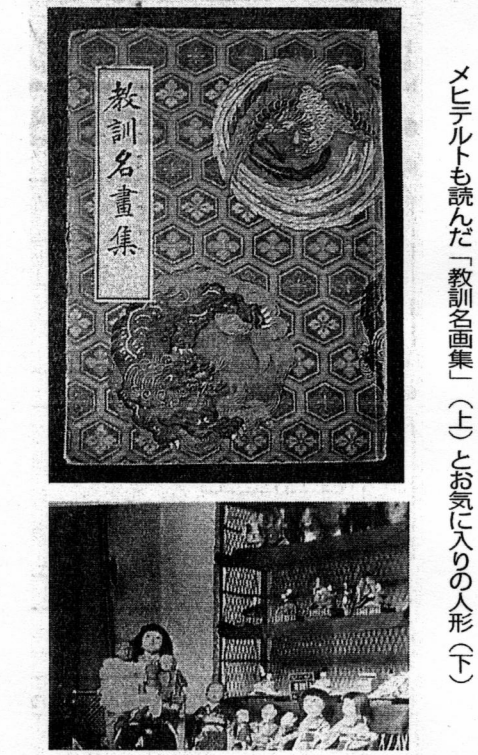 メヒテルトも読んだ「教訓名画集」（上）とお気に入りの人形（下）
教訓名畫集